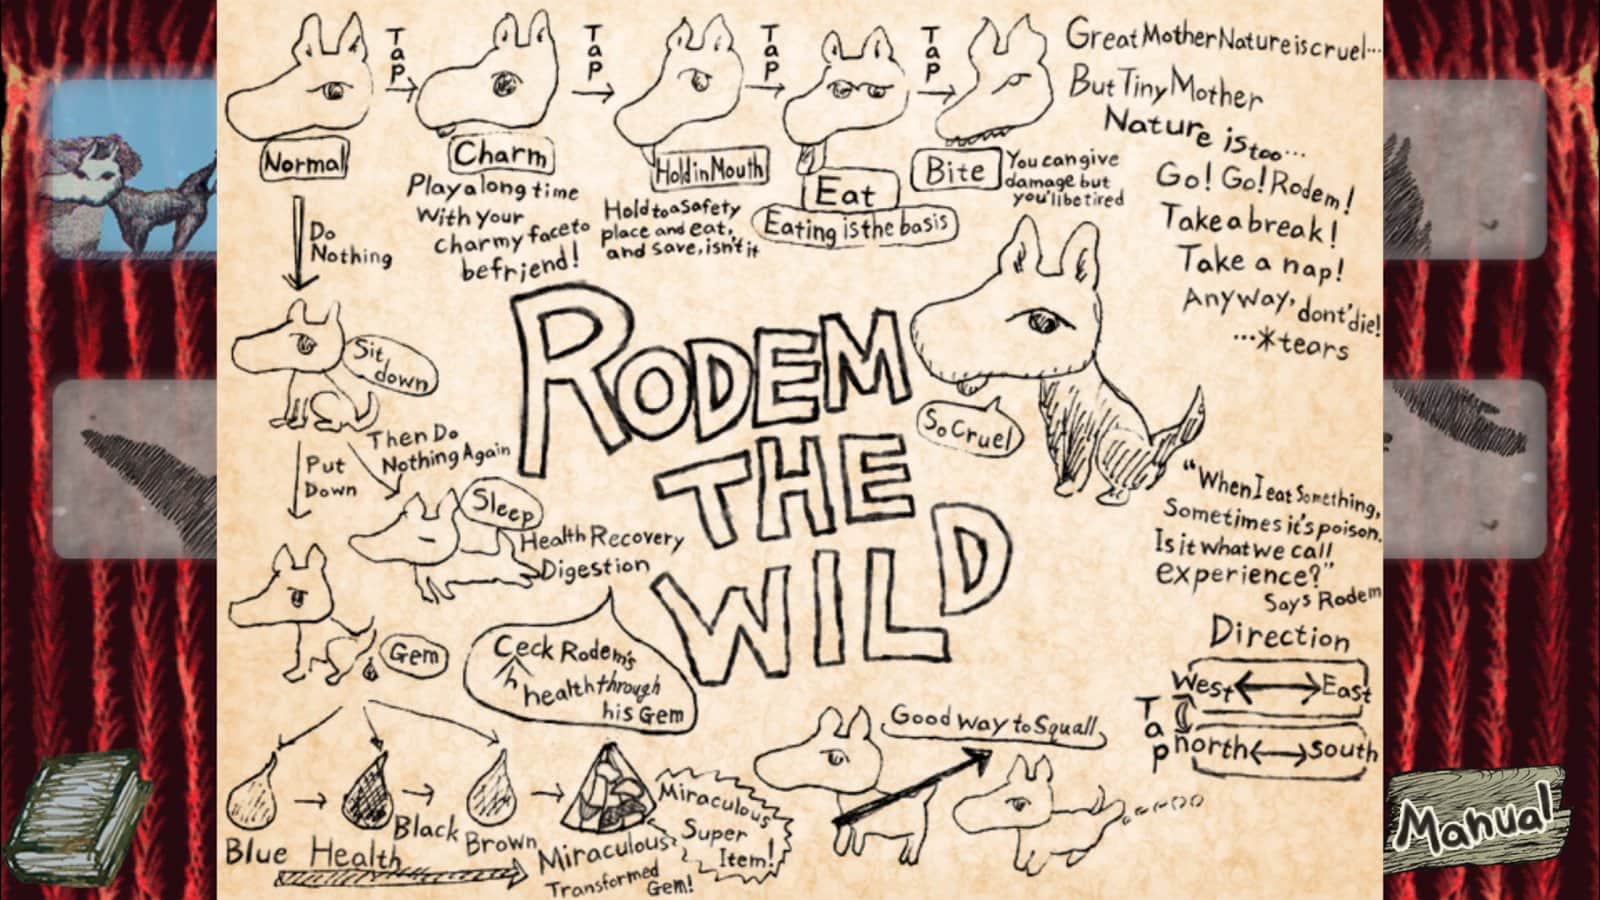 Tap
Tap
Tap
Tap
Normal
Charm
Play a long time
with your
charmy face to
befriend!
Hold in Mouth
Hold to a Safety
place and eat,
and save, isn't it
Eat
Eating is the basis
Bite
You can give
damage but
you'll be tired
Great Mother Nature is cruel...
But Tiny Mother
Nature is too...
Go! Go! Rodem!
Take a break!
Take a nap!
Anyway, dont' die!
...*tears
Do
Nothing
Sit
down
Then Do
Nothing Again
Put
Down
Sleep
Health Recovery
Digestion
Gem
Ceck Rodem's
h
health through
his Gem
RODEM
THE
WILD
So Cruel
"When I eat Something,
Sometimes it's poison.
Is it what we call
experience?"
Says Rodem
Direction
West East
Tap
north south
Good way to Squall
Blue
Health
Black
Brown
Miraculous
Transformed
Gem!
Miraculous
Super
Item!
Manual